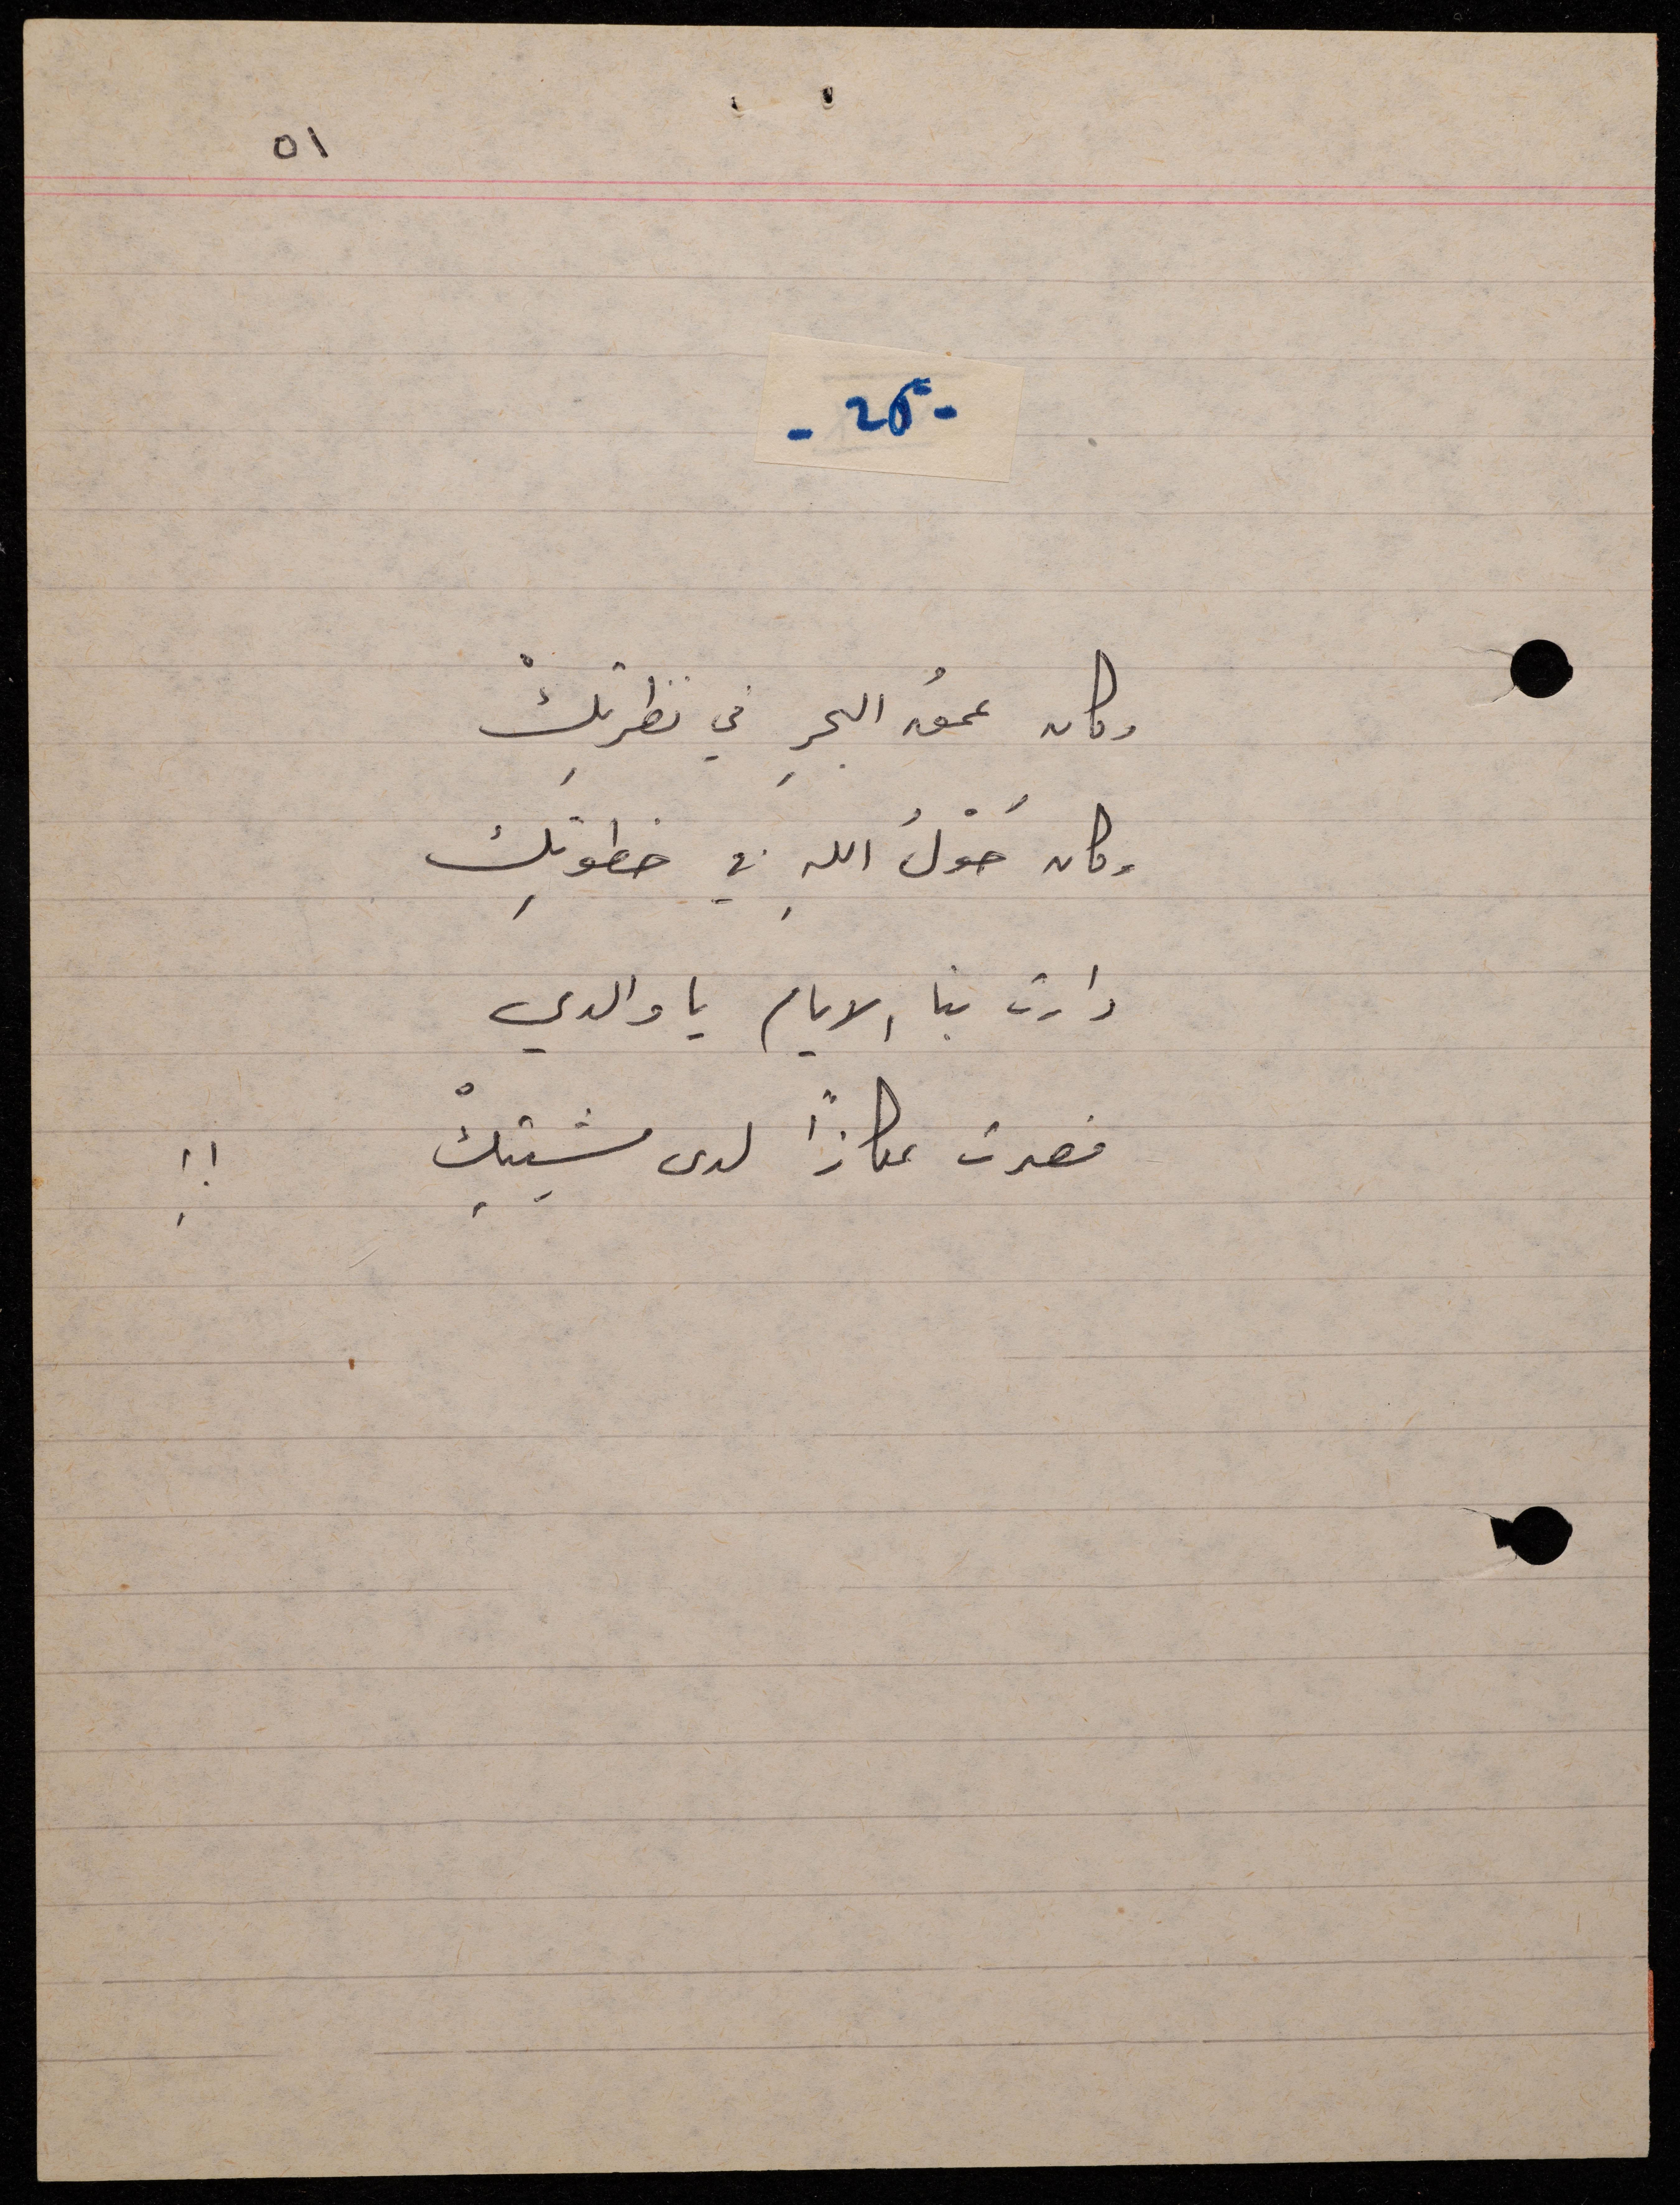 ٥١
- 25 -
وكان عمقُ البحرِ في نظرتِكْ
وكان حَوْلُ اللهِ في خطوتِكْ
دارت بنا الايام يا والدي
فصرت عكازاً لدى مشيتِكْ !!